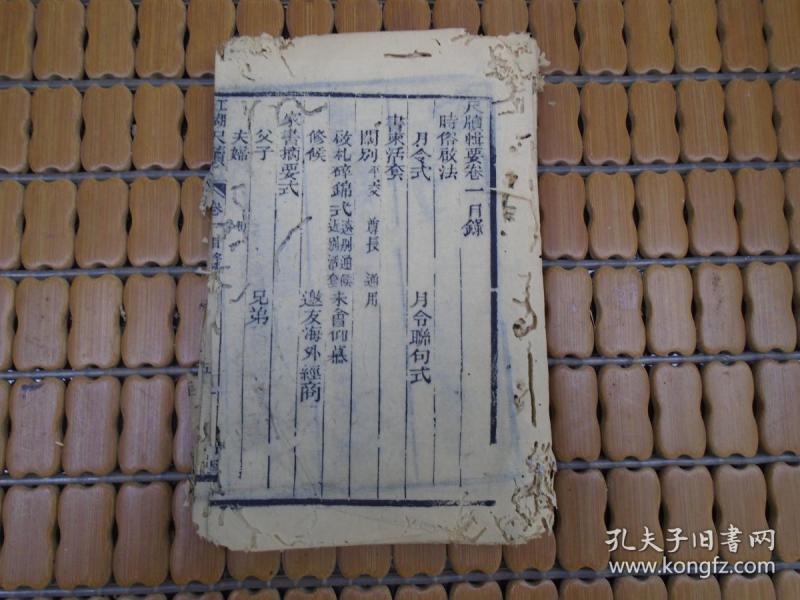 尺牘輯要卷一目錄
時俗啟法
月令式 月令聯句式
書柬活套
闊別 平交 尊長 通用
啟札碎錦式 遠別通候 近別活套 未會仰慕
修候 邀友海外經商
家書摘要式
父子 兄弟
夫婦
江湖尺牘 卷一目錄
孔夫子旧书网
www.kongfz.com